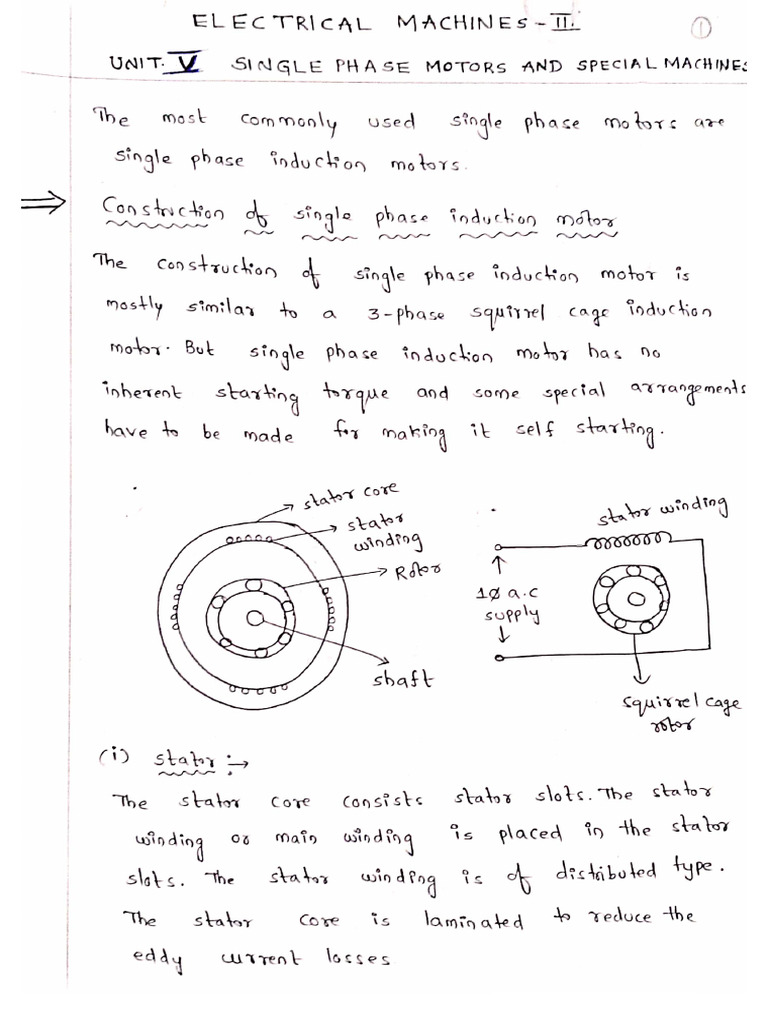 ELECTRICAL MACHINES-II.
1
UNIT. V SINGLE PHASE MOTORS AND SPECIAL MACHINES
The most commonly used single phase motors are
single phase induction motors.
⇒ Construction of single phase induction motor
The construction of single phase induction motor is
mostly similar to a 3-phase squirrel cage induction
motor. But single phase induction motor has no
inherent starting torque and some special arrangements
have to be made for making it self starting.
stator core
stator
winding
Rotor
shaft
stator winding
1ø a.c
supply
squirrel cage
rotor
(i) stator :→
The stator core consists stator slots. The stator
winding or main winding is placed in the stator
slots. The stator winding is of distributed type.
The stator core is laminated to reduce the
eddy current losses